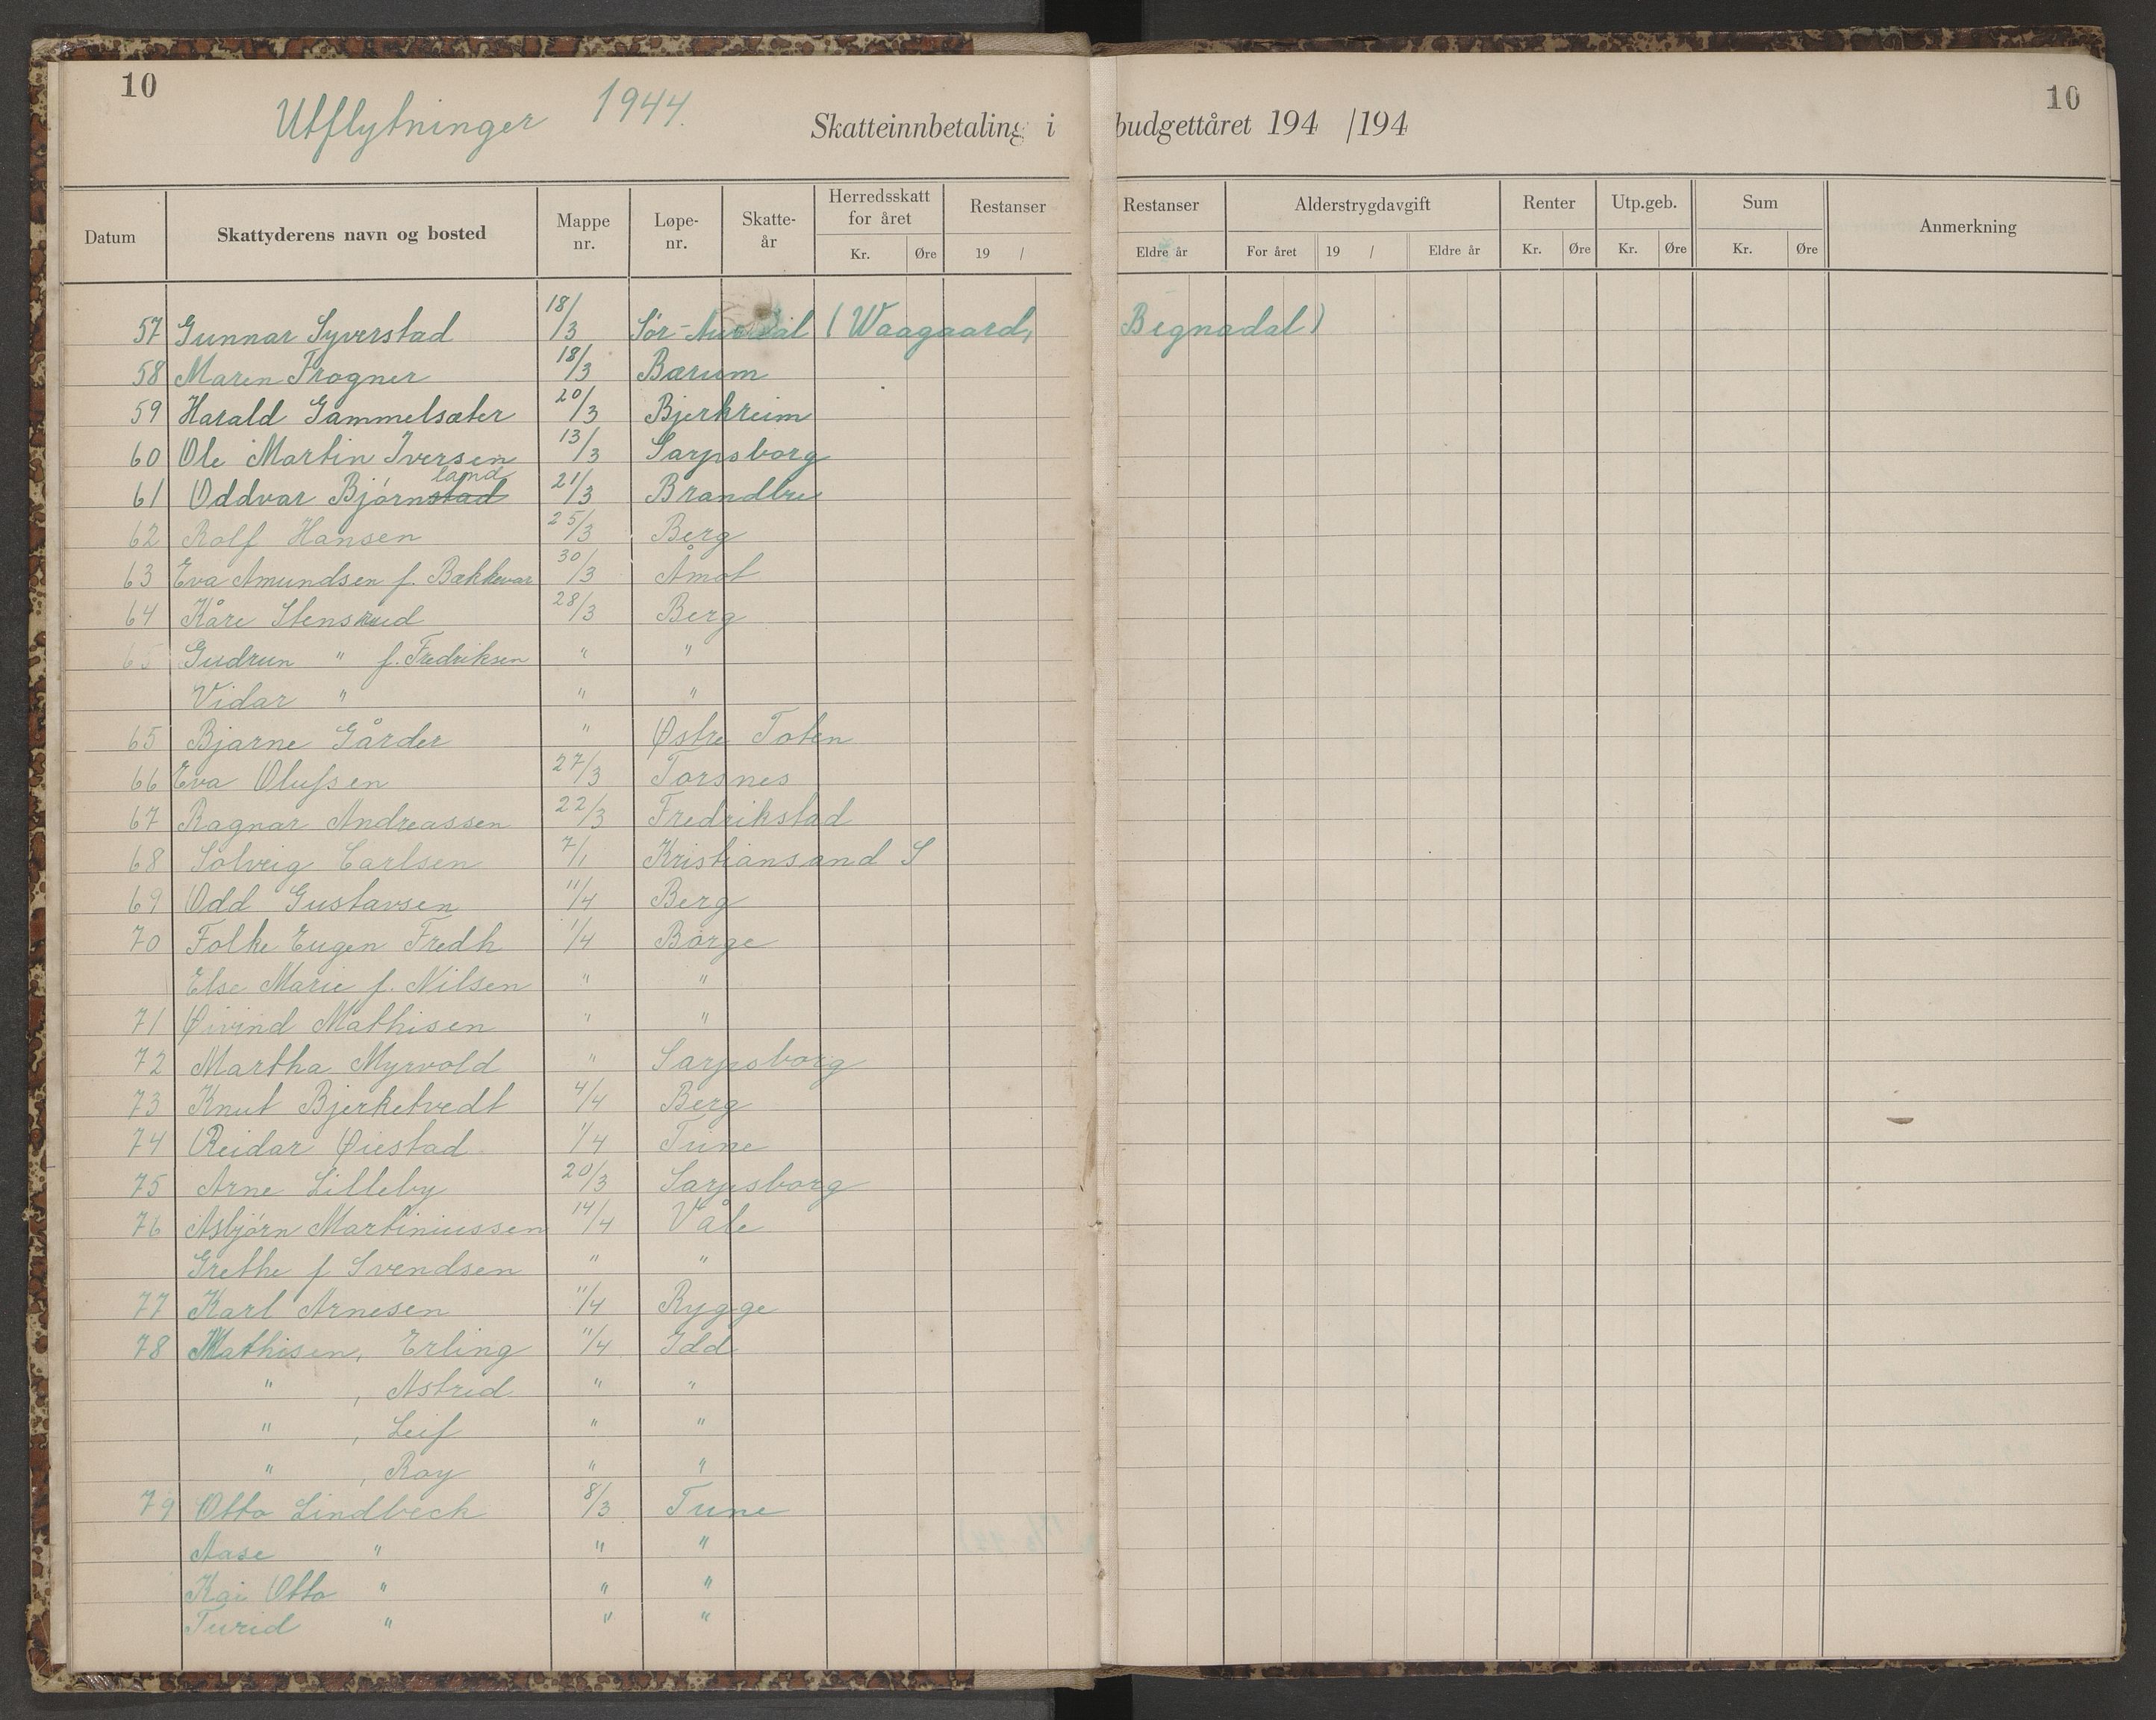 10
Utflytninger 1944.
Skatteinnbetaling i budgettåret 194 /194
10
Datum Skattyderens navn og bosted Mappe nr. Løpe-nr. Skatte-år Herredsskatt for året Kr. Øre Restanser 19 / Restanser Eldre år Alderstrygdavgift For året 19 / Eldre år Renter Kr. Øre Utp.geb. Kr. Øre Sum Kr. Øre Anmerkning
57 Gunnar Syverstad 18/3 Sør-Aurdal (Waagaard, Begnadal)
58 Maren Frogner 18/3 Bærum
59 Harald Gammelsæter 20/3 Bjerkreim
60 Ole Martin Iversen 13/3 Sarpsborg
61 Oddvar Bjørnstad land 21/3 Brandbu
62 Rolf Hansen 25/3 Berg
63 Eva Amundsen f. Bækkevar 30/3 Åmot
64 Kåre Stensrud 28/3 Berg
65 Gudrun " f. Fredriksen " "
Vidar " " "
65 Bjarne Gårder " Østre Toten
66 Eva Olufsen 27/3 Torsnes
67 Ragnar Andreassen 22/3 Fredrikstad
68 Solveig Carlsen 7/1 Kristiansand S
69 Odd Gustavsen 11/4 Berg
70 Folke Eugen Fredh 1/4 Borge
Else Marie f. Nilsen " "
71 Øivind Mathisen " "
72 Martha Myrvold " Sarpsborg
73 Knut Bjerketvedt 4/4 Berg
74 Reidar Øiestad 1/4 Tune
75 Arne Lilleby 20/3 Sarpsborg
76 Asbjørn Martiniussen 14/4 Våle
Grethe f Svendsen " "
77 Karl Arnesen 11/4 Rygge
78 Mathisen, Erling 11/4 Idd
" , Astrid " "
" , Leif " "
" , Roy " "
79 Otto Lindbeck 8/3 Tune
Aase " " "
Kai Otto " " "
Turid " " "